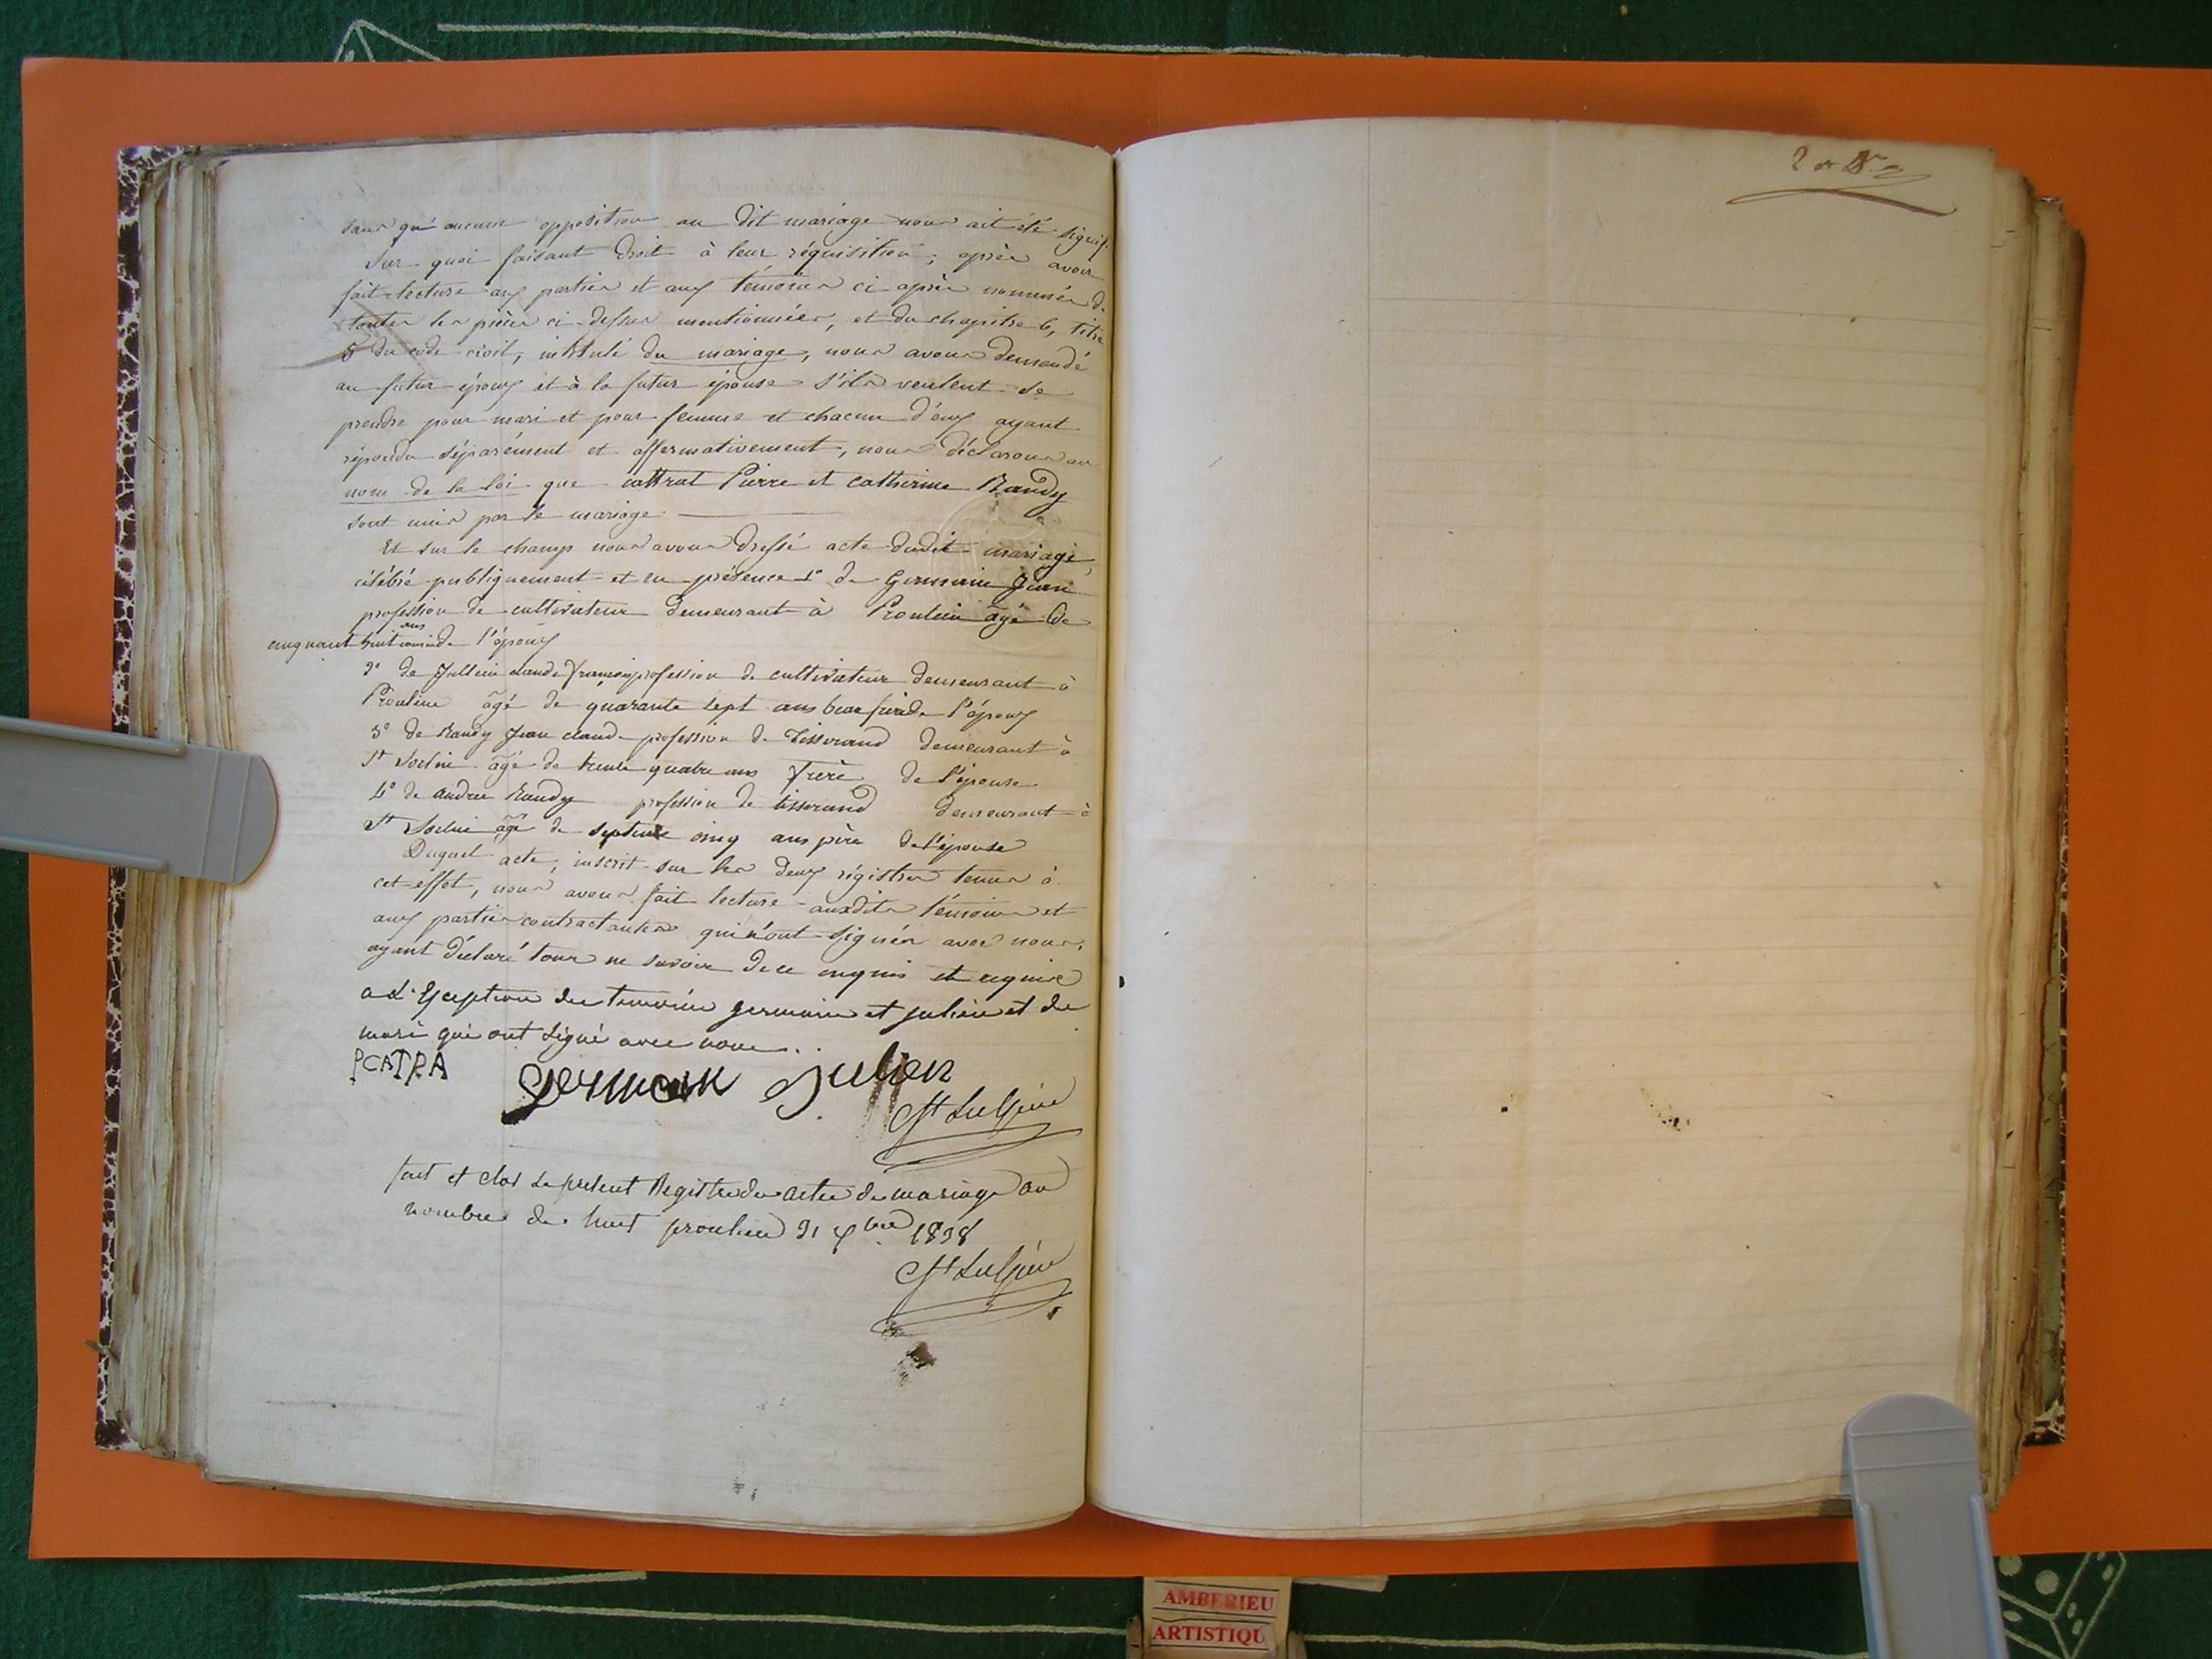 sans qu'aucune opposition au dit mariage nous ait été signif.
Sur quoi faisant droit à leur réquisition; après avoir
fait lecture aux parties et aux témoins ci après nommés de
toutes les pièces ci-dessus mentionnées, et du chapitre 6, titre
5 du code civil, intitulé du mariage, nous avons demandé
au futur époux et à la futur épouse s'ils veulent se
prendre pour mari et pour femme et chacun d'eux ayant
répondu séparément et affermativement, nous déclarons au
nom de la loi que cattrat Pierre et catherine Randy
sont unis par le mariage.
Et sur le champ nous avons dressé acte dudit mariage,
célébré publiquement et en présence 1° de Germain Jean
profession de cultivateur demeurant à Proulieu âgé de
cinquant huit ans de l'époux
2° de Jullien claude françois profession de cultivateur demeurant à
Proulieu âgé de quarante sept ans beau frère de l'époux
3° de Randy Jean claude profession de Tisserand demeurant à
St Sorlin âgé de trente quatre ans frère de l'épouse
4° de andré Randy profession de tisserand demeurant à
St Sorlin âgé de septente cinq ans père de l'épouse
Duquel acte, inscrit sur les deux régistres tenus à
cet effet, nous avons fait lecture auxdits témoins et
aux parties contractantes qui n'ont signés avec nous,
ayant déclaré tous ne savoir de ce enquis et requis
a L'Exception des temoins germain et julien et du
mari qui ont signé avec nous.
PCATRA germain Julien
fait et clos le présent Registre des actes de mariage au
nombre de huit proulieu 31 Xbre 1838
2 or
AMBERIEU
ARTISTIQU